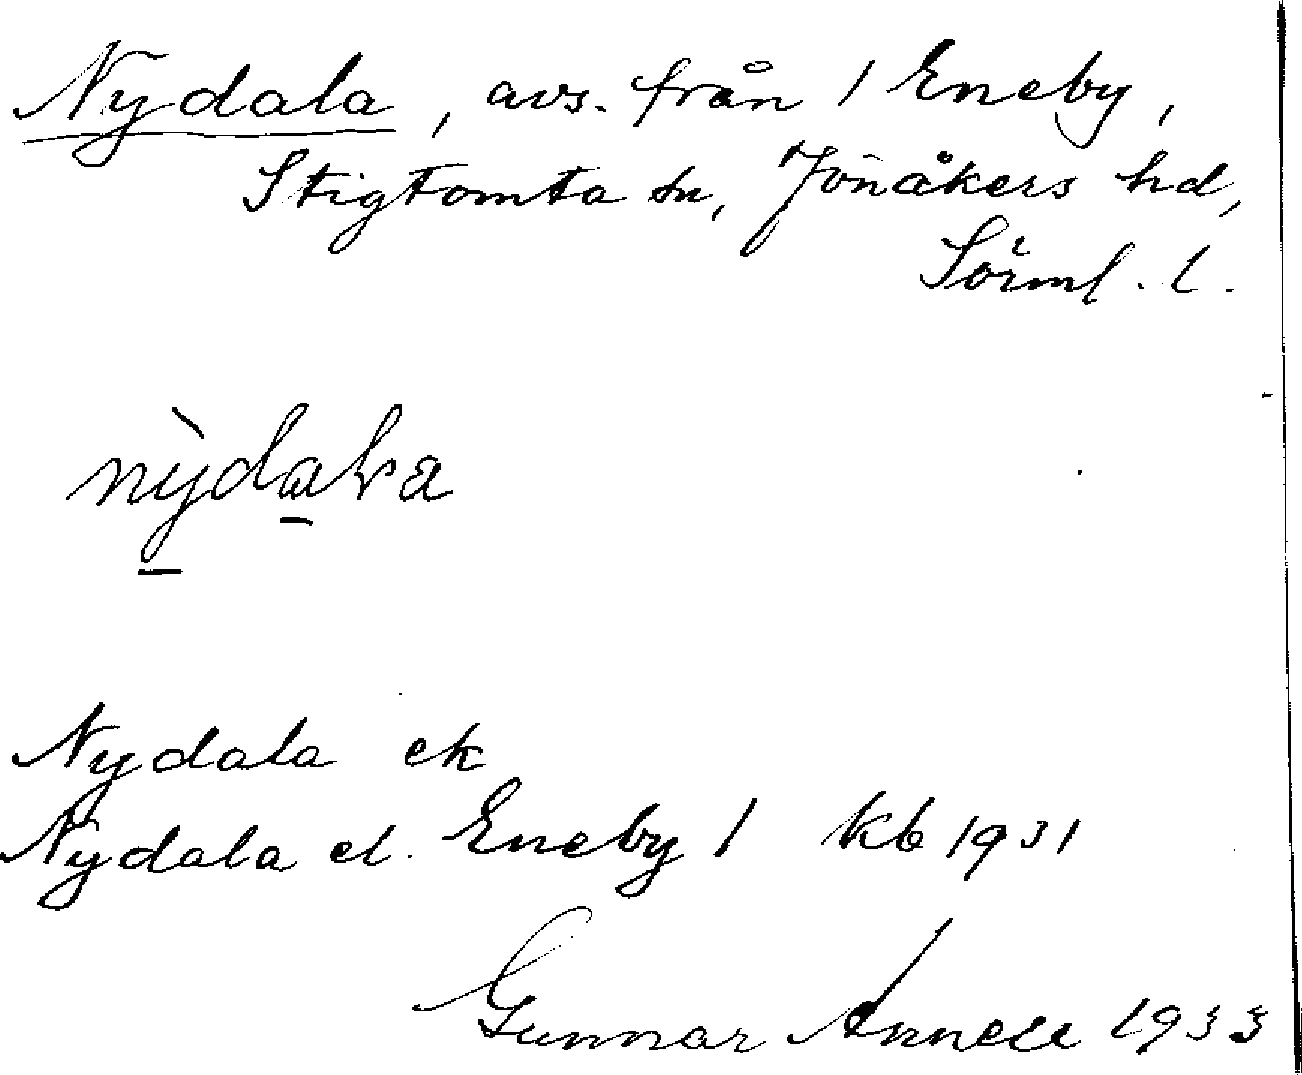 Nydala, avs. från 1 Eneby,
Stigtomta sn, Jönåkers hd,
Sörml. l.
nỳdaka
Nydala ek
Nydala el. Eneby 1 kb 1931
Gunnar Annell 1933